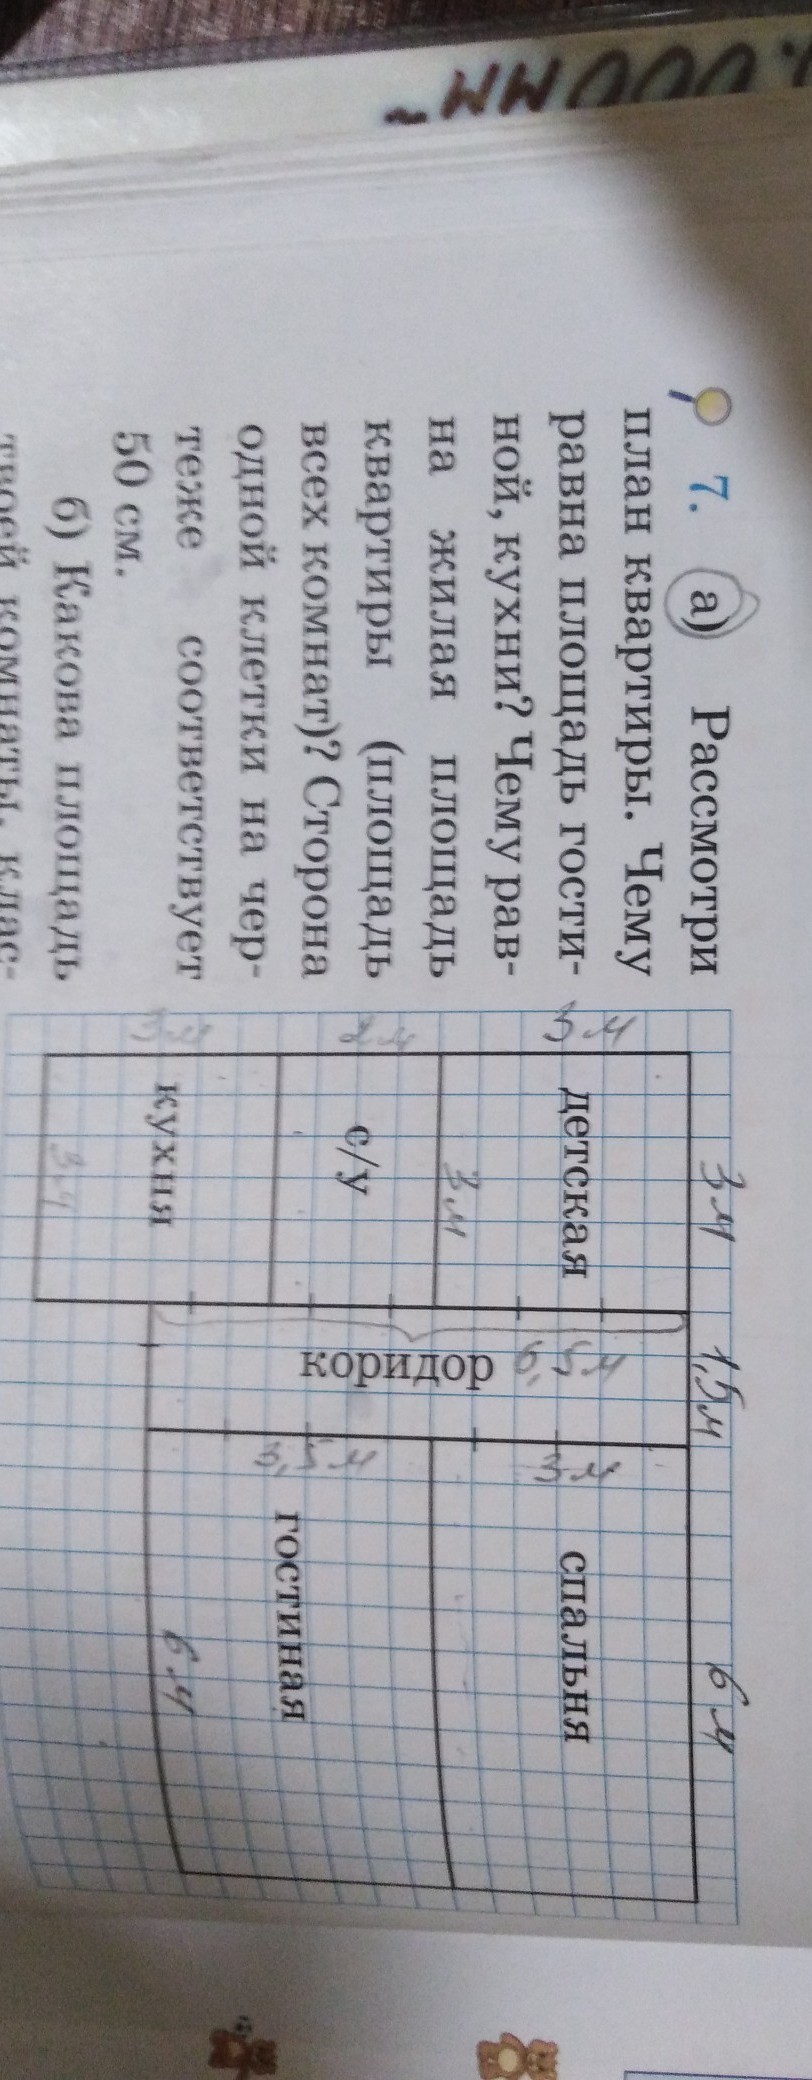 .000мм~
7. а) Рассмотри
план квартиры. Чему
равна площадь гости-
ной, кухни? Чему рав-
на жилая площадь
квартиры (площадь
всех комнат)? Сторона
одной клетки на чер-
теже соответствует
50 см.
б) Какова площадь
твоей комнаты, клас-
3 м
1,5 м
6 м
3 м
детская
6,5 м
3 м
спальня
3 м
2 м
с/у
коридор
3,5 м
гостиная
3 м
кухня
6 м
3 м